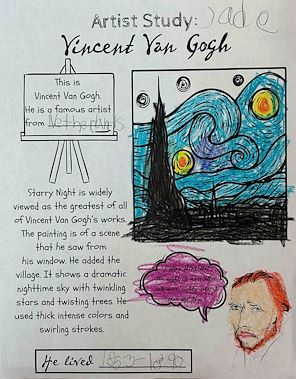 Artist Study: Jade
Vincent Van Gogh
This is
Vincent Van Gogh.
He is a famous artist
from
Starry Night is widely
viewed as the greatest of all
of Vincent Van Gogh's works.
The painting is of a scene
that he saw from
his window. He added the
village. It shows a dramatic
nighttime sky with twinkling
stars and twisting trees. He
used thick intense colors and
swirling strokes.
He lived 1853-1890